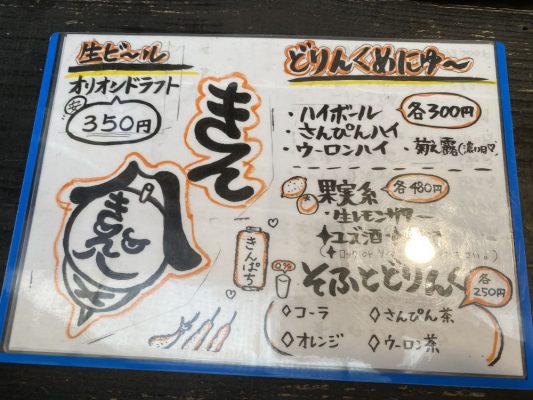 生ビ〜ル
オリオンドラフト
安
350円
きそ
きんぱち
どりんくめにゅ〜
・ハイボール
各300円
・さんぴんハイ
・ウーロンハイ
・菊之露
果実系
各480円
・生レモンサワー
ユズ酒
そふとどりんく
各250円
0%
◇コーラ ◇さんぴん茶
◇オレンジ ◇ウーロン茶